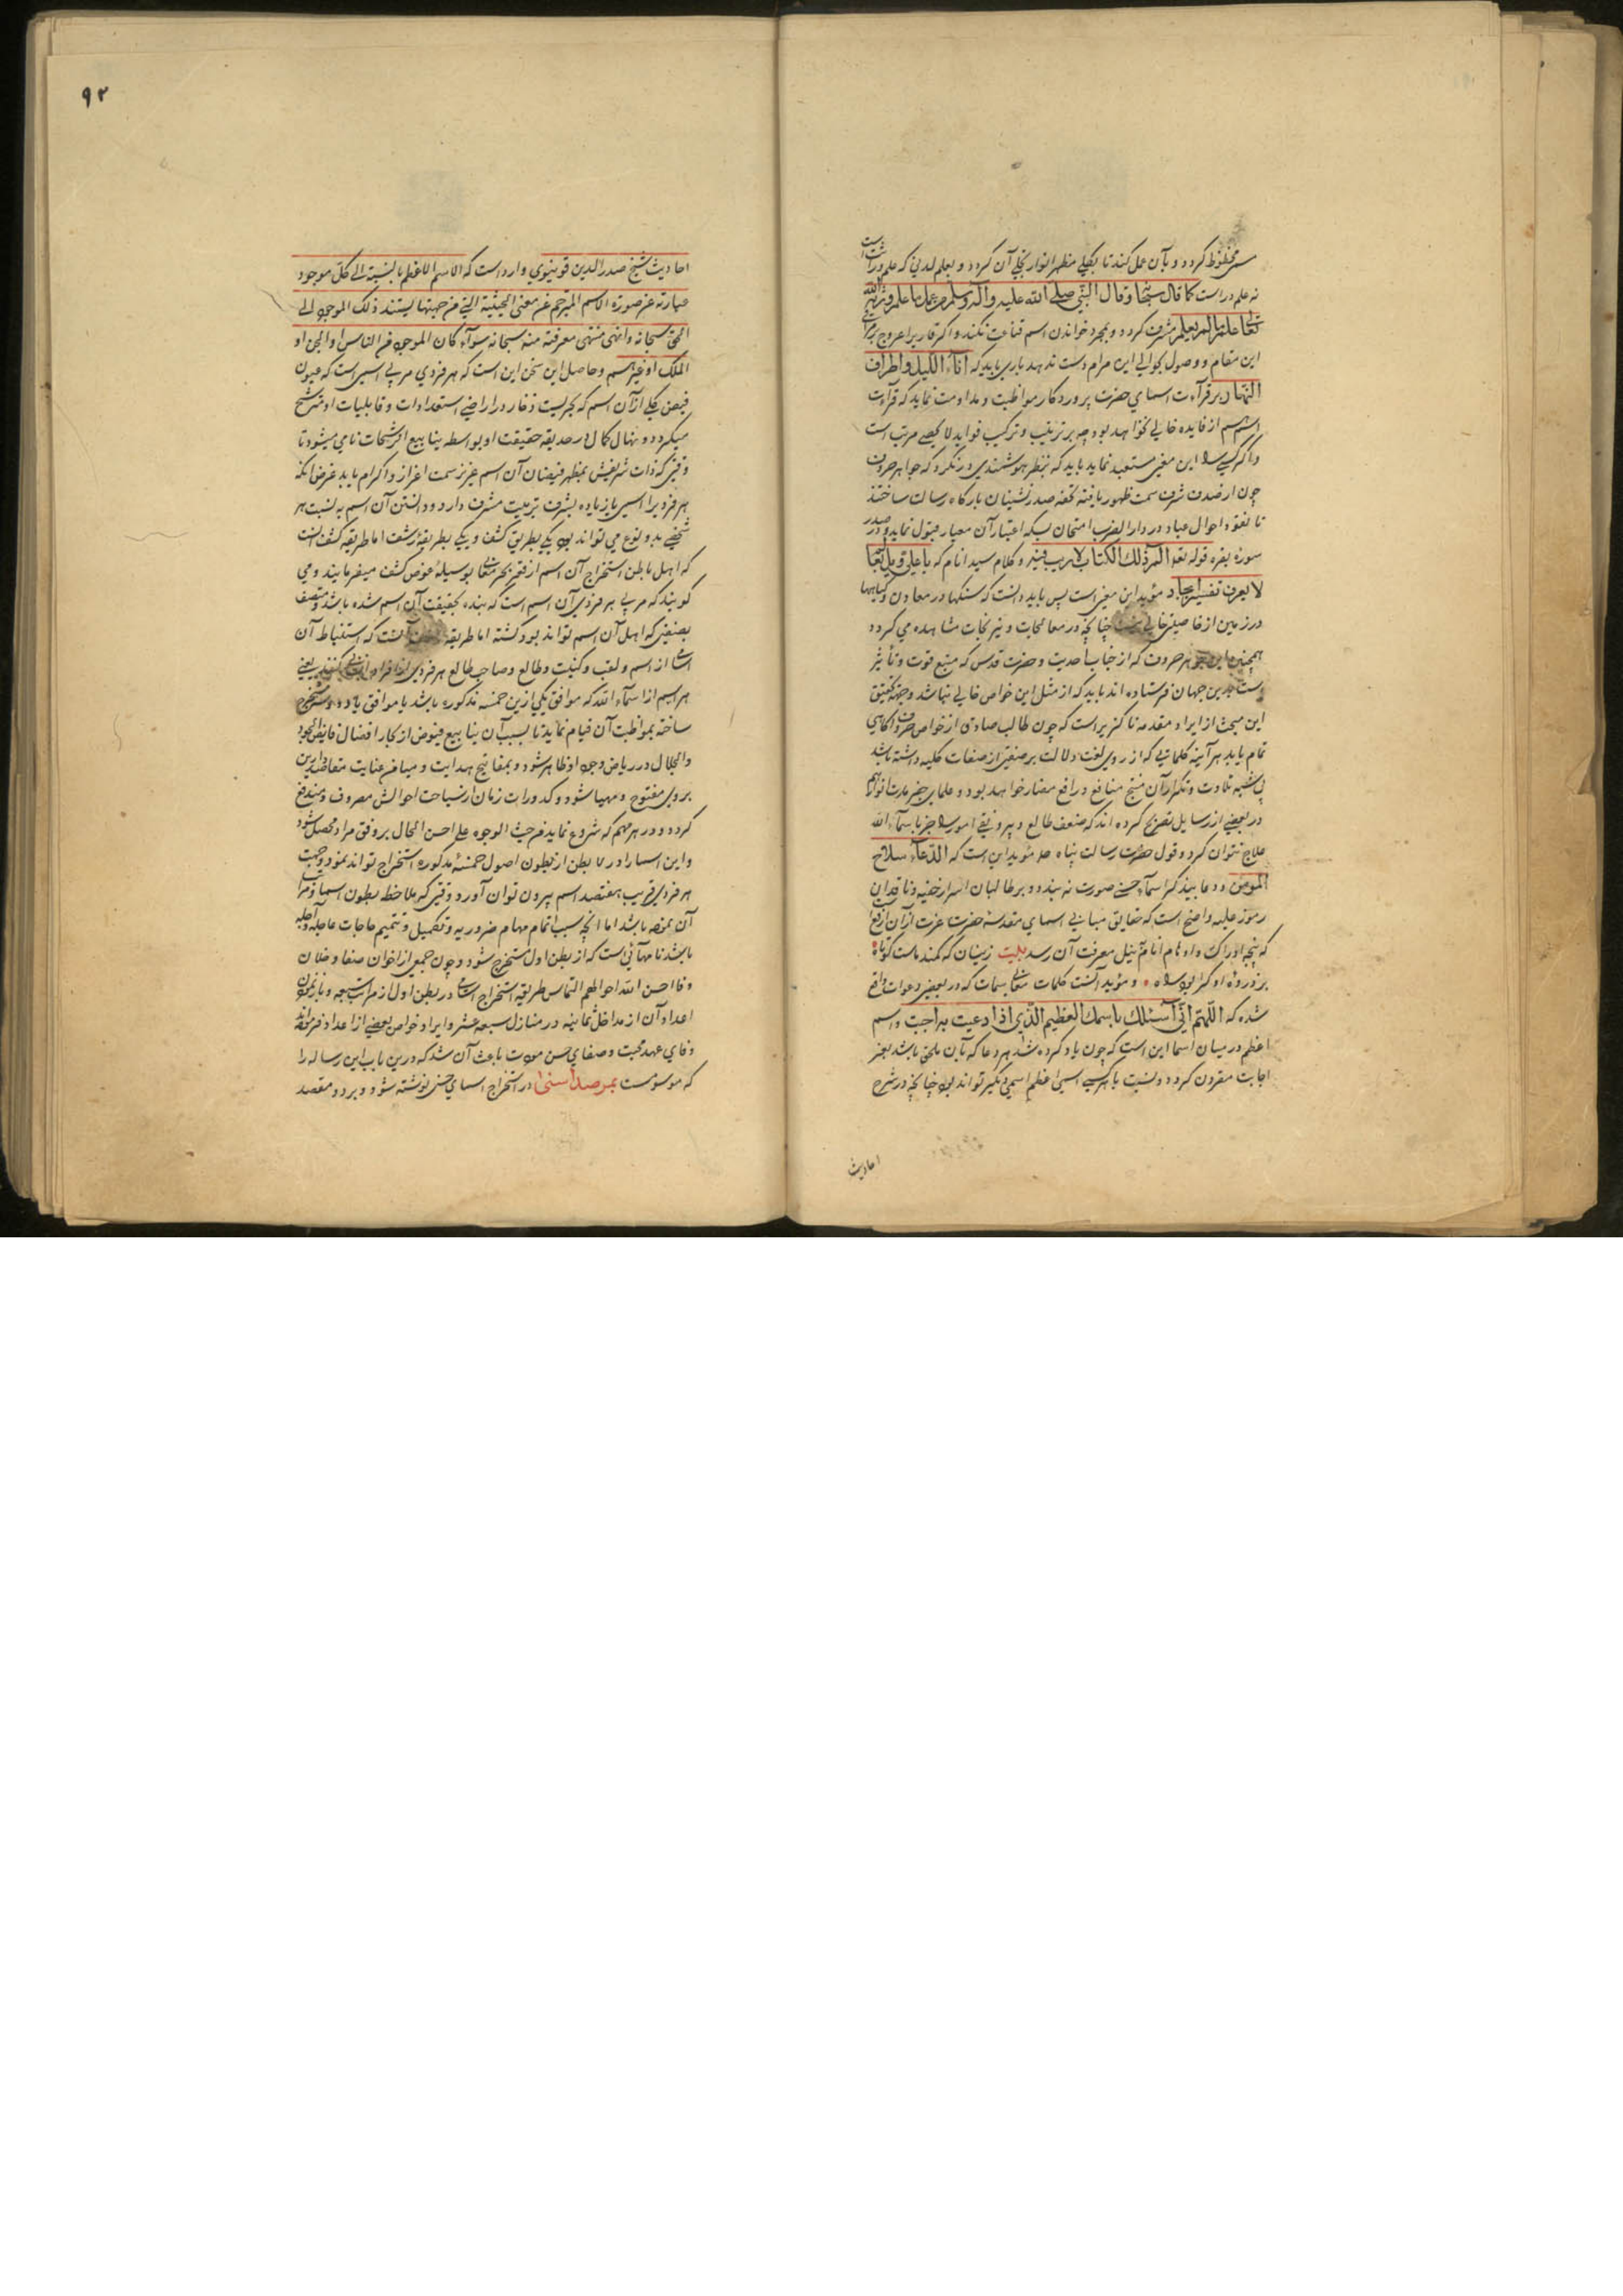 محظوظ کردد و بآن عمل کند تا بکلی مظهر انوار تجلی آن کردد و بعلم لدنی که علم وراثت است
نه علم دراست کما قال سبحانه وقال النبی صلی الله علیه وآله وسلم من عمل بما علم ورثه الله
تعالی علم ما لم یعلم مشرف کردد و بمجرد خواندن اسم قناعت نکند و اکر قاری را عروج برای
این مقام و وصول بحوالی این مرام دست ندهد باری باید که اناء اللیل واطراف
النهار بر قرآءت اسمای حضرت پروردکار مواظبت و مداومت نماید که قرآءت
اسم از فایده خالی نخواهد بود چه بر ترتیب و ترکیب فواید لا یحصی مرتب است
و اکر کسی این معنی مستبعد نماید باید که بنظر هوشمندی در نکرد که جواهر حروف
چون از صدف شرف سمت ظهور یافته تحفه صدر نشینان بارکاه رسالت ساختند
تا نقود احوال عباد در دار الضرب امتحان بسکه اعتبار آن معیار قبول نماید و در صدر
سورۀ بقره قوله تعالی الم ذلک الکتاب لا ریب فیه و کلام سید انام که یا علی ویل لعالم
لا یعرف تفسیر ابجاد مؤید این معنی است پس باید دانست که سنکها در معادن و کیاهها
در زمین از خاصیتی خالی نیست چنانچه در معالجات و نیرنجات مشاهده می کردد
همچنین این جواهر حروف که از جناب احدیت و حضرت قدس که منبع قوت و تأثیر
است بدین جهان فرستاده اند باید که از مثل این خواص خالی نباشد وجهة تحقیق
این مبحث از ایراد مقدمه ناکزیر است که چون طالب صادق از خواص حروف آکاهی
تمام یابد هر آینه کلماتی که از روی لغت دلالت بر صفتی از صفات کلیه داشته باشد
بی شبهه تلاوت و تکرار آن منتج منافع و رافع مضار خواهد بود و علمای
در بعضی از رسایل تصریح کرده اند که ضعف طالع و بیرونقی امور را جز باسماء الله
علاج نتوان کرد و قول حضرت رسالت پناه صلعم مؤید این است که الدعاء سلاح
المؤمن و دعا بیذکر اسماء حسنی صورت نه بندد و بر طالبان اسرار خفیه و ناقدان
رموز جلیه واضح است که حقایق مبانی اسمای مقدسۀ حضرت عزت از آن ارفع
که پنجۀ ادراک و اوهام انام بنیل معرفت آن رسد بیت زینسان که کمند ماست کوتاه
بر ذروۀ او کرا بود راه و مؤید آنست کلمات سمات که در بعضی دعوات واقع
شده که اللهم انی اسئلک باسمک العظیم الذی اذا دعیت به اجبت و اسم
اعظم در میان اسما این است که چون یاد کرده شد هر دعا که بآن ملحق باشد بعز
اجابت مقرون کردد و نسبت با هر کسی اسمی اعظم اسمی دیکر تواند بود چنانچه در شرح
احادیث
۹۲
احادیث شیخ صدر الدین قونیوی وارد است که الاسم الاعظم بالنسبة الی کل موجود
عبارة عن صورة الاسم المترجم عن معنی الحیثیة التی من جهتها یستند ذلک الموجود الی
الحق سبحانه وانتهی منتهی معرفته منه سبحانه سوآء کان الموجود من الناس او الجن او
الملک او غیرهم و حاصل این سخن این است که هر فردی مربی اسمی است که عیون
فیض تجلی از آن اسم که بحریست ذخار در اراضی استعدادات و قابلیات او مترشح
میکردد و نهال کمال در حدیقه حقیقت او بواسطه ینابیع آن رشحات نامی میشود تا
وقتی که ذات شریفش بمظهر فیضان آن اسم عزیز سمت اعزاز و اکرام یابد غرض آنکه
هر فردی را اسمی یا زیاده بشرف تربیت مشرف دارد و دانستن آن اسم به نسبت هر
شخصی بدو نوع می تواند بود یکی بطریق کشف و یکی بطریقۀ رشف اما طریقه کشف آنست
که اهل باطن استخراج آن اسم از قعر بحر معانی بوسیلۀ غوص کشف میفرمایند و می
کویند که مربی هر فردی آن اسم است که بنده بحقیقت آن اسم شده باشد و متصف
بصفتی که اهل آن اسم تواند بود کشته اما طریقه رشف آنست که استنباط آن
اسامی از اسم و لقب و کنیت و طالع و صاحب طالع هر فردی از افراد انسانی کنند یعنی
هر اسم از اسماء الله که موافق یکی ازین خمسه مذکوره باشد یا موافق با دو مستخرج
ساخته بمواظبت آن قیام نماید تا بسبب آن ینابیع فیوض از بحار افضال فایض الجود
والجلال در ریاض وجود او ظاهر شود و بمفاتیح هدایت و میامن عنایت مقاصد دارین
بروی مفتوح و مهیا شود و کدورات زمان از ساحت احوالش مصروف و مندفع
کردد و در هر مهم که شروع نماید من حیث الوجوه علی احسن الحال بر وفق مراد محصل شود
و این اسما را در ۷ بطن از بطون اصول خمسۀ مذکوره استخراج تواند نمود و جهت
هر فردی قریب هفتصد اسم بیرون توان آورد وقتی که ملاحظه بطون اسما و مراتب
آن نموده باشد اما آنچه سبب اتمام مهام ضروریه و تکمیل و تتمیم حاجات عاجله و آجله
باشد نامهائی است که از بطن اول مستخرج شود و چون جمعی از اخوان صفا و خلان
وفا احسن الله احوالهم التماس طریقه استخراج اسامی در بطن اول از مراتب سبعه و باز نمودن
اعداد آن از مداخل ثمانیه در منازل سبعه عشر و ایراد خواص بعضی از اعداد فرمودند
وفای عهد محبت و صفای حسن مودت باعث آن شد که درین باب این رساله را
که موسومست بمرصد اسنی در استخراج اسمای حسنی نوشته شود و بر دو مقصد